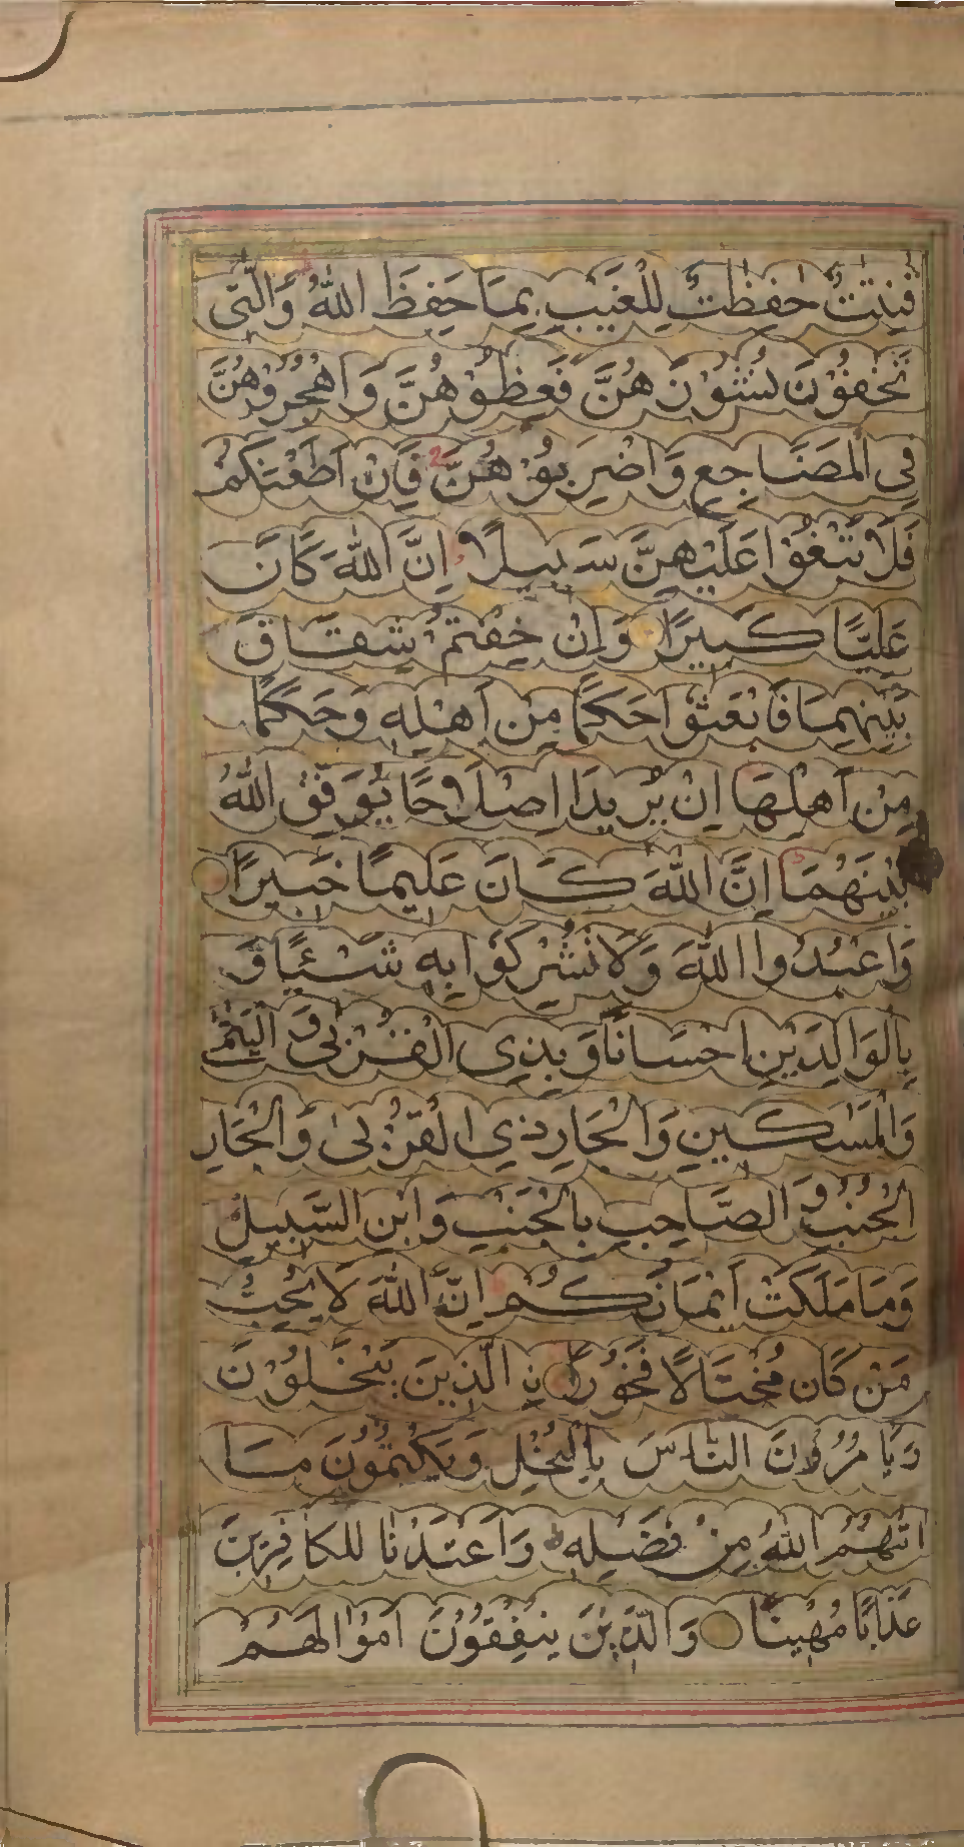 قٰنِتٰتٌ حٰفِظٰتٌ لِلْغَيْبِ بِمَا حَفِظَ اللّٰهُ وَالّٰتِى
تَخَافُوْنَ نُشُوْزَهُنَّ فَعِظُوْهُنَّ وَاهْجُرُوْهُنَّ
فِى الْمَضَاجِعِ وَاضْرِبُوْهُنَّ فَاِنْ اَطَعْنَكُمْ
فَلَا تَبْغُوْا عَلَيْهِنَّ سَبِيلًا اِنَّ اللّٰهَ كَانَ
عَلِيًّا كَبِيرًا وَاِنْ خِفْتُمْ شِقَاقَ
بَيْنِهِمَا فَابْعَثُوْا حَكَمًا مِنْ اَهْلِهٖ وَحَكَمًا
مِنْ اَهْلِهَا اِنْ يُرِيدَا اِصْلَاحًا يُوَفِّقِ اللّٰهُ
بَيْنَهُمَا اِنَّ اللّٰهَ كَانَ عَلِيمًا خَبِيرًا
وَاعْبُدُوا اللّٰهَ وَلَا تُشْرِكُوْا بِهٖ شَيْئًا وَ
بِالْوَالِدَيْنِ اِحْسَانًا وَبِذِى الْقُرْبٰى وَالْيَتٰمٰى
وَالْمَسٰكِينِ وَالْجَارِ ذِي الْقُرْبٰى وَالْجَارِ
الْجُنُبِ وَالصَّاحِبِ بِالْجَنْبِ وَابْنِ السَّبِيلِ
وَمَا مَلَكَتْ اَيْمَانُكُمْ اِنَّ اللّٰهَ لَا يُحِبُّ
مَنْ كَانَ مُخْتَالًا فَخُوْرًا نِ الَّذِينَ يَبْخَلُوْنَ
وَيَأْمُرُوْنَ النَّاسَ بِالْبُخْلِ وَيَكْتُمُوْنَ مَا
اٰتٰهُمُ اللّٰهُ مِنْ فَضْلِهٖ وَاَعْتَدْنَا لِلْكَافِرِينَ
عَذَابًا مُهِينًا وَالَّذِينَ يُنْفِقُوْنَ اَمْوَالَهُمْ